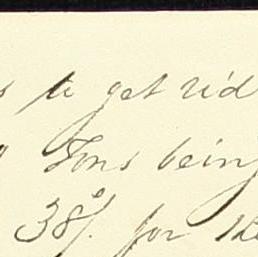 to get rid
Tons being
38/. for the